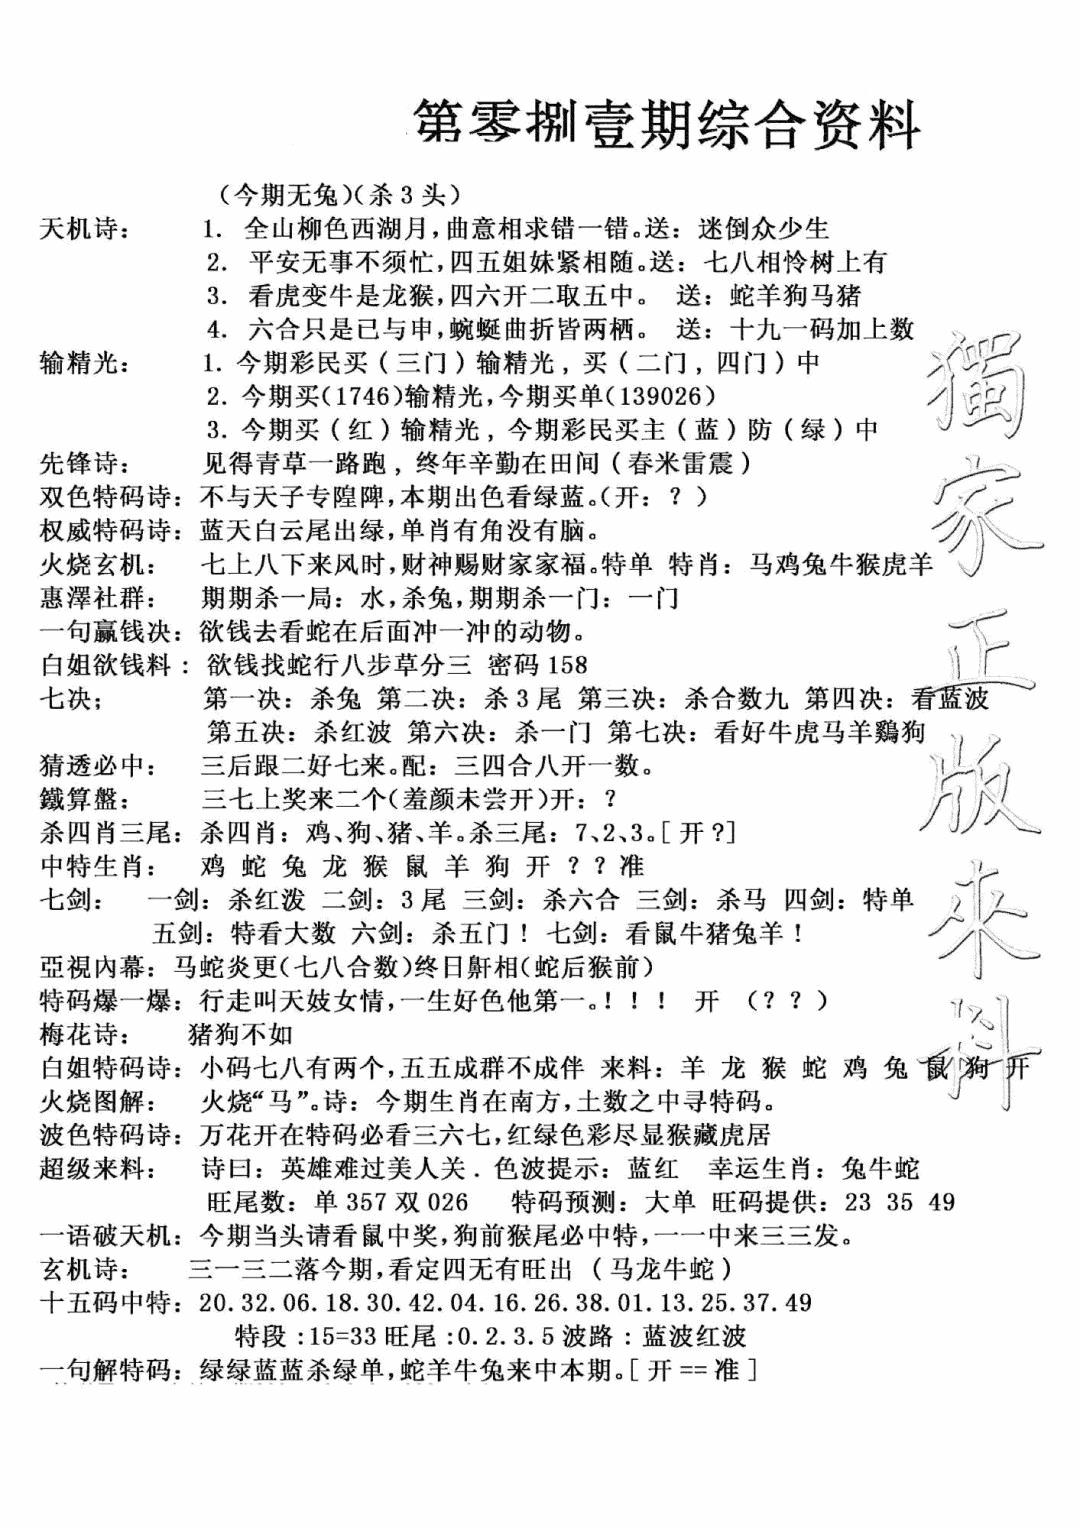 第零捌壹期综合资料
（今期无兔）（杀3头）
天机诗： 1. 全山柳色西湖月，曲意相求错一错。送：迷倒众少生
2. 平安无事不须忙，四五姐妹紧相随。送：七八相怜树上有
3. 看虎变牛是龙猴，四六开二取五中。 送：蛇羊狗马猪
4. 六合只是已与申，蜿蜒曲折皆两栖。 送：十九一码加上数
输精光： 1. 今期彩民买（三门）输精光，买（二门，四门）中
2. 今期买(1746)输精光，今期买单(139026)
3. 今期买（红）输精光，今期彩民买主（蓝）防（绿）中
先锋诗： 见得青草一路跑，终年辛勤在田间（春米雷震）
双色特码诗：不与天子专隍陴，本期出色看绿蓝。（开：？）
权威特码诗：蓝天白云尾出绿，单肖有角没有脑。
火烧玄机： 七上八下来风时，财神赐财家家福。特单 特肖：马鸡兔牛猴虎羊
惠澤社群： 期期杀一局：水，杀兔，期期杀一门：一门
一句赢钱决：欲钱去看蛇在后面冲一冲的动物。
白姐欲钱料： 欲钱找蛇行八步草分三 密码158
七决； 第一决：杀兔 第二决：杀3尾 第三决：杀合数九 第四决：看蓝波
第五决：杀红波 第六决：杀一门 第七决：看好牛虎马羊鷄狗
猜透必中： 三后跟二好七来。配：三四合八开一数。
鐵算盤： 三七上奖来二个(羞颜未尝开)开：？
杀四肖三尾：杀四肖：鸡、狗、猪、羊。杀三尾：7、2、3。[开?]
中特生肖： 鸡 蛇 兔 龙 猴 鼠 羊 狗 开 ？？准
七剑： 一剑：杀红泼 二剑：3尾 三剑：杀六合 三剑：杀马 四剑：特单
五剑：特看大数 六剑：杀五门！ 七剑：看鼠牛猪兔羊！
亞視内幕：马蛇炎更(七八合数)终日鼾相(蛇后猴前)
特码爆一爆：行走叫天妓女情，一生好色他第一。！！！ 开 （？？）
梅花诗： 猪狗不如
白姐特码诗：小码七八有两个，五五成群不成伴 来料：羊 龙 猴 蛇 鸡 兔 鼠 狗 开
火烧图解： 火烧“马”。诗：今期生肖在南方，土数之中寻特码。
波色特码诗：万花开在特码必看三六七，红绿色彩尽显猴藏虎居
超级来料： 诗曰：英雄难过美人关．色波提示：蓝红 幸运生肖：兔牛蛇
旺尾数：单357双026 特码预测：大单 旺码提供：23 35 49
一语破天机：今期当头请看鼠中奖，狗前猴尾必中特，一一中来三三发。
玄机诗： 三一三二落今期，看定四无有旺出 （马龙牛蛇）
十五码中特：20.32.06.18.30.42.04.16.26.38.01.13.25.37.49
特段：15=33旺尾：0.2.3.5波路：蓝波红波
一句解特码：绿绿蓝蓝杀绿单，蛇羊牛兔来中本期。[开==准]
獨家正版來料